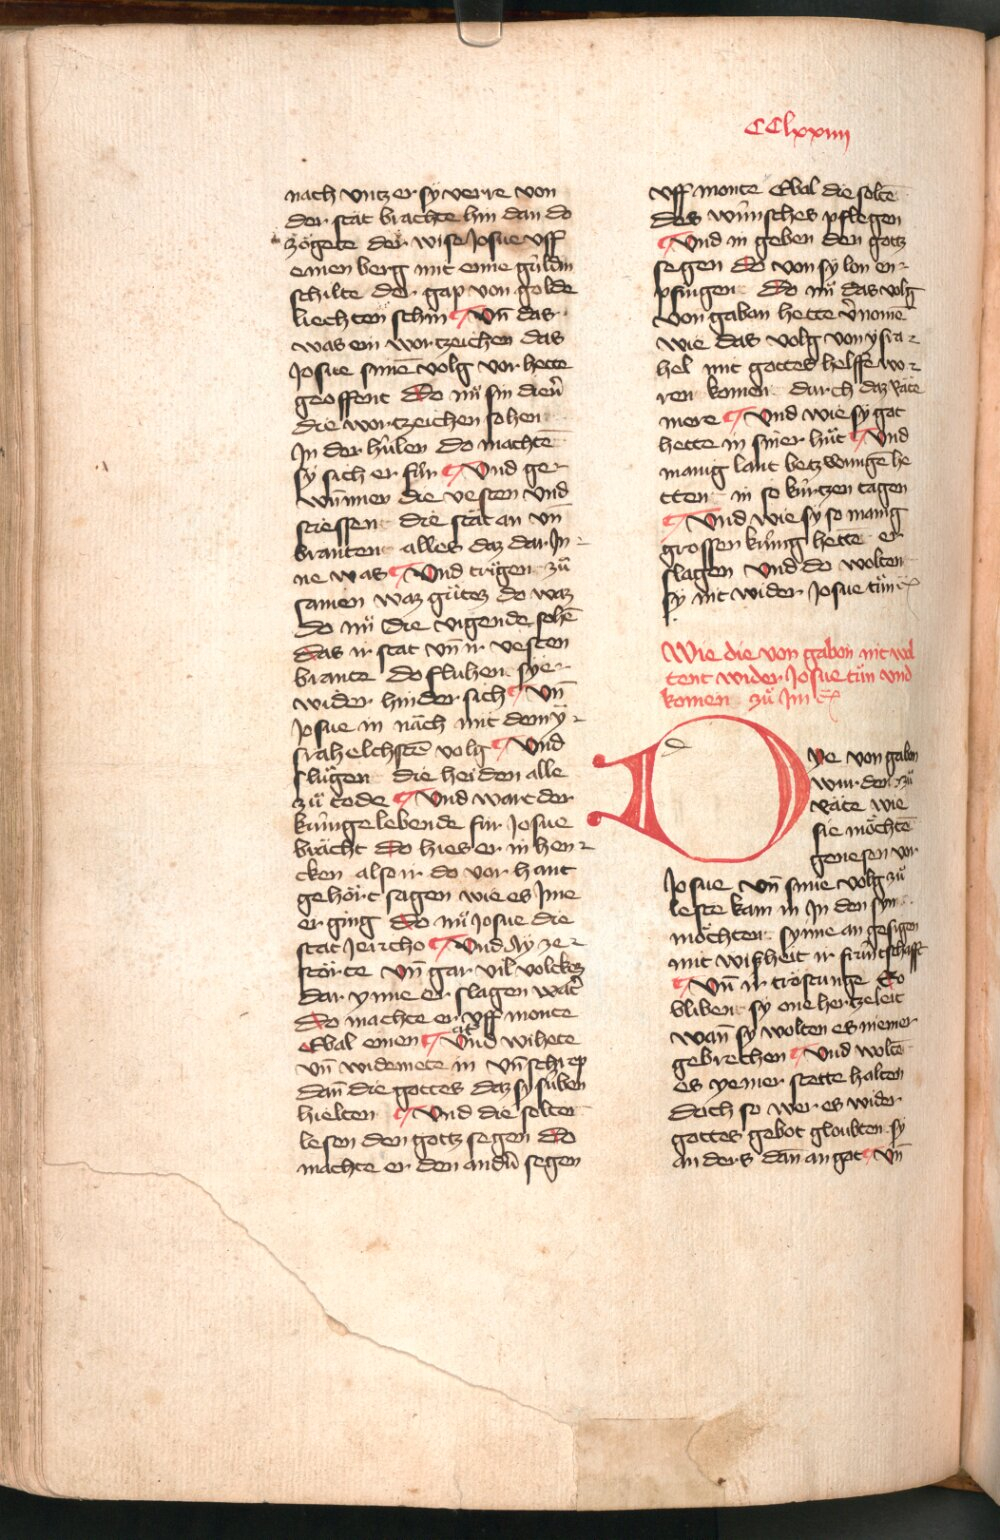 CClxxiiii
nach vntz er sÿ verre von
der stat brachte hin dan do
zögete der wise Josue vff
einen berg mit eime güldin
schilte der gap von golde
liechten schin ¶ Vn̄ das
was ein wortzeichen das
Josue sinē volg vor hette
geoffent Do nuͦ sin dien̄
die wortzeichen sohen
In der hülen do machtē
sÿ sich er für ¶ Vnd ge
wūnnen die vesten vnd
stiessen die stat an vn̄
branten alles daz dar In
ne was ¶ Vnd truͤgen zuͦ
samen waz guͤtez do waz
Do nuͦ die vigende sohē
Das ir stat vn̄ ir vesten
brante do fluhen sÿe
wider hinder sich ¶ Vn̄
Josue in nāch mit dem ÿ
srahelchstē volg ¶ Vnd
sluͤgen die heiden alle
zuͦ tode ¶ Vnd wart der
künige lebende für Josue
bracht Do hies er in hen
cken also ir do vor hant
gehört sagen wie es Ime
er ging Do nuͦ Josue die
stat Jericho ¶ Vnd Aÿ ze
störte vn̄ gar vil volckez
dar ynne er slagen wart
Do machte er vff monte
Ebal einen ¶ Vnd wihete
vn̄ widemete in vn̄ schrep
dan̄ die gottes daz sÿ süben
hielten ¶ Vnd die solten
lesen den gottz segen Do
machte er den andn̄ segen
vff monte Ebal die soltē
des wünsches pflegen
¶ Vnd in geben den gottz
segen do von sÿ lon en
pfingen Do nuͦ das volg
von gabon hette v̄nome
wie das volg von ÿsra
hel mit gottes helffe wo
ren komen durch daz rate
mere ¶ Vnd wie sÿ got
hette in siner huͦt ¶ Vnd
manig lant betzwungē he
tten in so kürtzen tagen
¶ Vnd wie sÿ so manig
grossen künig hettē er
slagen Vnd do wolten
sÿ nit wider Josue tuͦn
Wie die von gabon nit wol
tent wider Josue tuͦn vnd
komen zuͦ Im
DYe von gabon
wurden zuͦ
rate wie
sie möchtē
genesen vor
Josue vn̄ sime volg zuͦ
leste kam in In den syn
möchten sÿ ime an gesigen
mit wißheit ir früntschafft
¶ Vn̄ ir tröstunge So
bliben sÿ one hertzeleit
wan̄ sÿ wolten es niemer
gebrechen ¶ Vnd woltē
es yemer stette halten
Doch so wer es wider
gottes gebot gloubten sÿ
anders dan̄ an got ¶ Vn̄